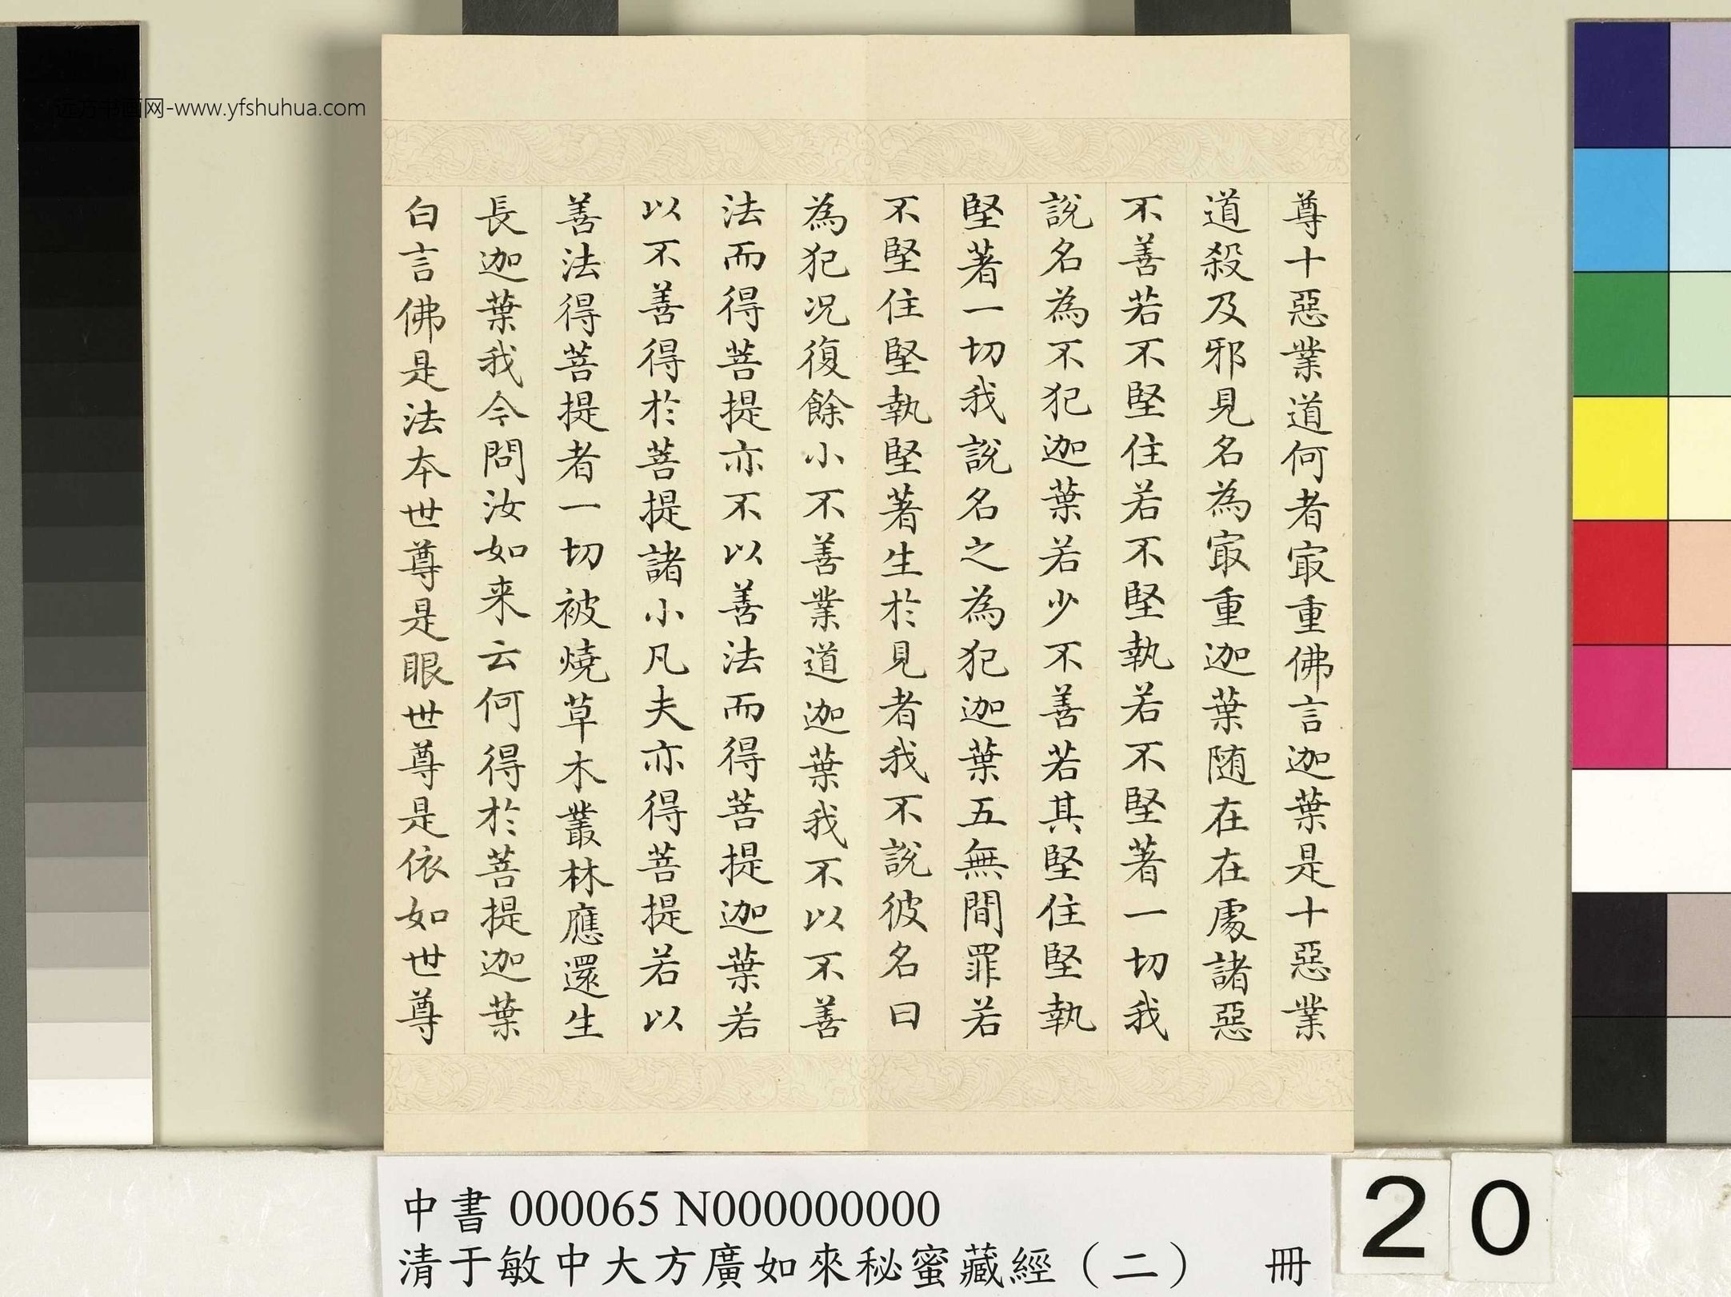 尊十惡業道何者㝡重佛言迦葉是十惡業
道殺及邪見名為㝡重迦葉随在在處諸惡
不善若不堅住若不堅執若不堅著一切我
說名為不犯迦葉若少不善若其堅住堅執
堅著一切我說名之為犯迦葉五無間罪若
不堅住堅執堅著生於見者我不說彼名曰
為犯况復餘小不善業道迦葉我不以不善
法而得菩提亦不以善法而得菩提迦葉若
以不善得於菩提諸小凡夫亦得菩提若以
善法得菩提者一切被燒草木叢林應還生
長迦葉我今問汝如来云何得於菩提迦葉
白言佛是法本世尊是眼世尊是依如世尊
中書 000065 N000000000
清于敏中大方廣如來秘蜜藏經（二） 冊
20
网-www.yfshuhua.com